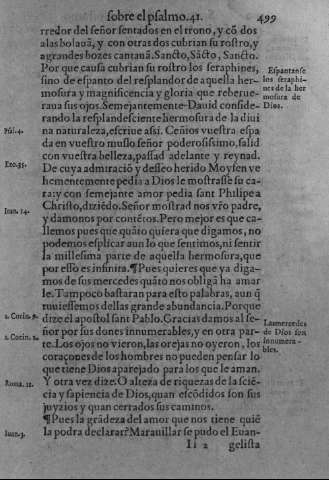 sobre el psalmo.41. 499
rredor del señor sentados en el trono, y cõ dos
alas bolauã, y con otras dos cubrian su rostro, y
a grandes bozes cantauã. Sancto, Sãcto, Sancto.
Por que causa cubrian su rostro los seraphines,
sino de espanto del resplandor de aquella her-
mosura y magnificencia y gloria que reberue-
raua sus ojos. Semejantemente Dauid conside-
rando la resplandesciente hermosura de la diui
na naturaleza, escriue assi. Ceñios vuestra espa
da en vuestro muslo señor poderosissimo, salid
con vuestra belleza, passad adelante y reynad.
De cuya admiraciõ y desseo herido Moysen ve
hementemente pedia a Dios le mostrasse su ca-
ra: y con semejante amor pedia sant Philipe a
Christo, diziẽdo. Señor mostrad nos vr̃o padre,
y damonos por contẽtos. Pero mejor es que ca-
llemos pues que quãto quiera que digamos, no
podemos esplicar aun lo que sentimos, ni sentir
la millesima parte de aquella hermosura, que
por esso es infinita. ¶Pues quieres que ya diga-
mos de sus mercedes quãto nos obligã ha amar
le. Tampoco bastaran para esto palabras, aun q̃
tuuiessemos dellas grande abundancia. Porque
dize el apostol sant Pablo. Gracias damos al se-
ñor por sus dones innumerables, y en otra par-
te. Los ojos no vieron, las orejas no oyeron, los
coraçones de los hombres no pueden pensar lo
que tiene Dios aparejado para los que le aman.
Y otra vez dize. O alteza de riquezas de la sciẽ-
cia y sapiencia de Dios, quan escõdidos son sus
juyzios y quan cerrados sus caminos.
¶Pues la grãdeza del amor que nos tiene quiẽ
la podra declarar? Marauillar se pudo el Euan-
Ii 2 gelista
Espantense
los seraphi-
nes de la her
mosura de
Dios.
Psal.4.
Exo.35.
Ioan.14.
2. Corin.9.
1. Corin.2.
Las mercedes
de Dios son
innumera-
bles.
Roma.11.
Ioan.3.